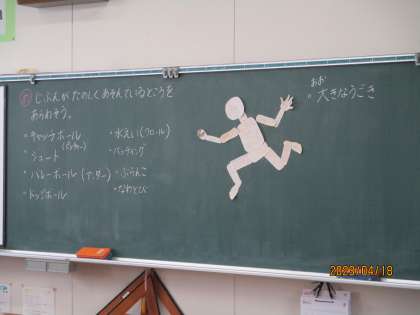 め じぶんがたのしくあそんでいるところを
あらわそう。
・キャッチボール
(ピッチャー)
・シュート
・バレーボール(アンダー)
・ドッジボール
・水えい(クロール)
・バッティング
・ぶらんこ
・なわとび
おお
・大きなうごき
2023/04/18